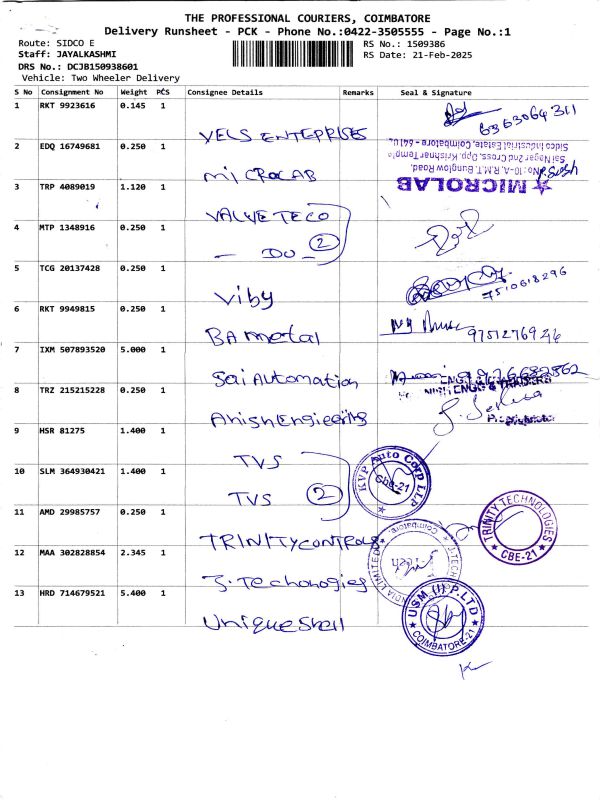 THE PROFESSIONAL COURIERS, COIMBATORE
Delivery Runsheet - PCK - Phone No.:0422-3505555 - Page No.:1
Route: SIDCO E
RS No.: 1509386
Staff: JAYALKASHMI
RS Date: 21-Feb-2025
DRS No.: DCJB150938601
Vehicle: Two Wheeler Delivery
S No Consignment No Weight PCS Consignee Details Remarks Seal & Signature
1 RKT 9923616 0.145 1 VELS ENTEPRISES 6363064311
2 EDQ 16749681 0.250 1 MICROLAB
Sidco Industrial Estate, Coimbatore - 641
Sai Nagar 2nd Cross, Opp. Krishnar Temple
No: 10-A, R.M.T. Bunglow Road,
★ MICROLAB
3 TRP 4089019 1.120 1 VALVETECO
4 MTP 1348916 0.250 1 - DO - 2
5 TCG 20137428 0.250 1 Viby 7510618296
6 RKT 9949815 0.250 1 BA metal 9751276926
7 IXM 507893520 5.000 1 Sai Automation
8 TRZ 215215228 0.250 1 Anish Engieerits
9 HSR 81275 1.400 1 TVS
10 SLM 364930421 1.400 1 TVS 2
KVP Auto Corp LLP
CBE-21
11 AMD 29985757 0.250 1 TRINITY CONTROLS
TRINITY TECHNOLOGIES
CBE-21
12 MAA 302828854 2.345 1 J. Techonogies
13 HRD 714679521 5.400 1 Unique Shell
USM (I) P.LTD
COIMBATORE-21